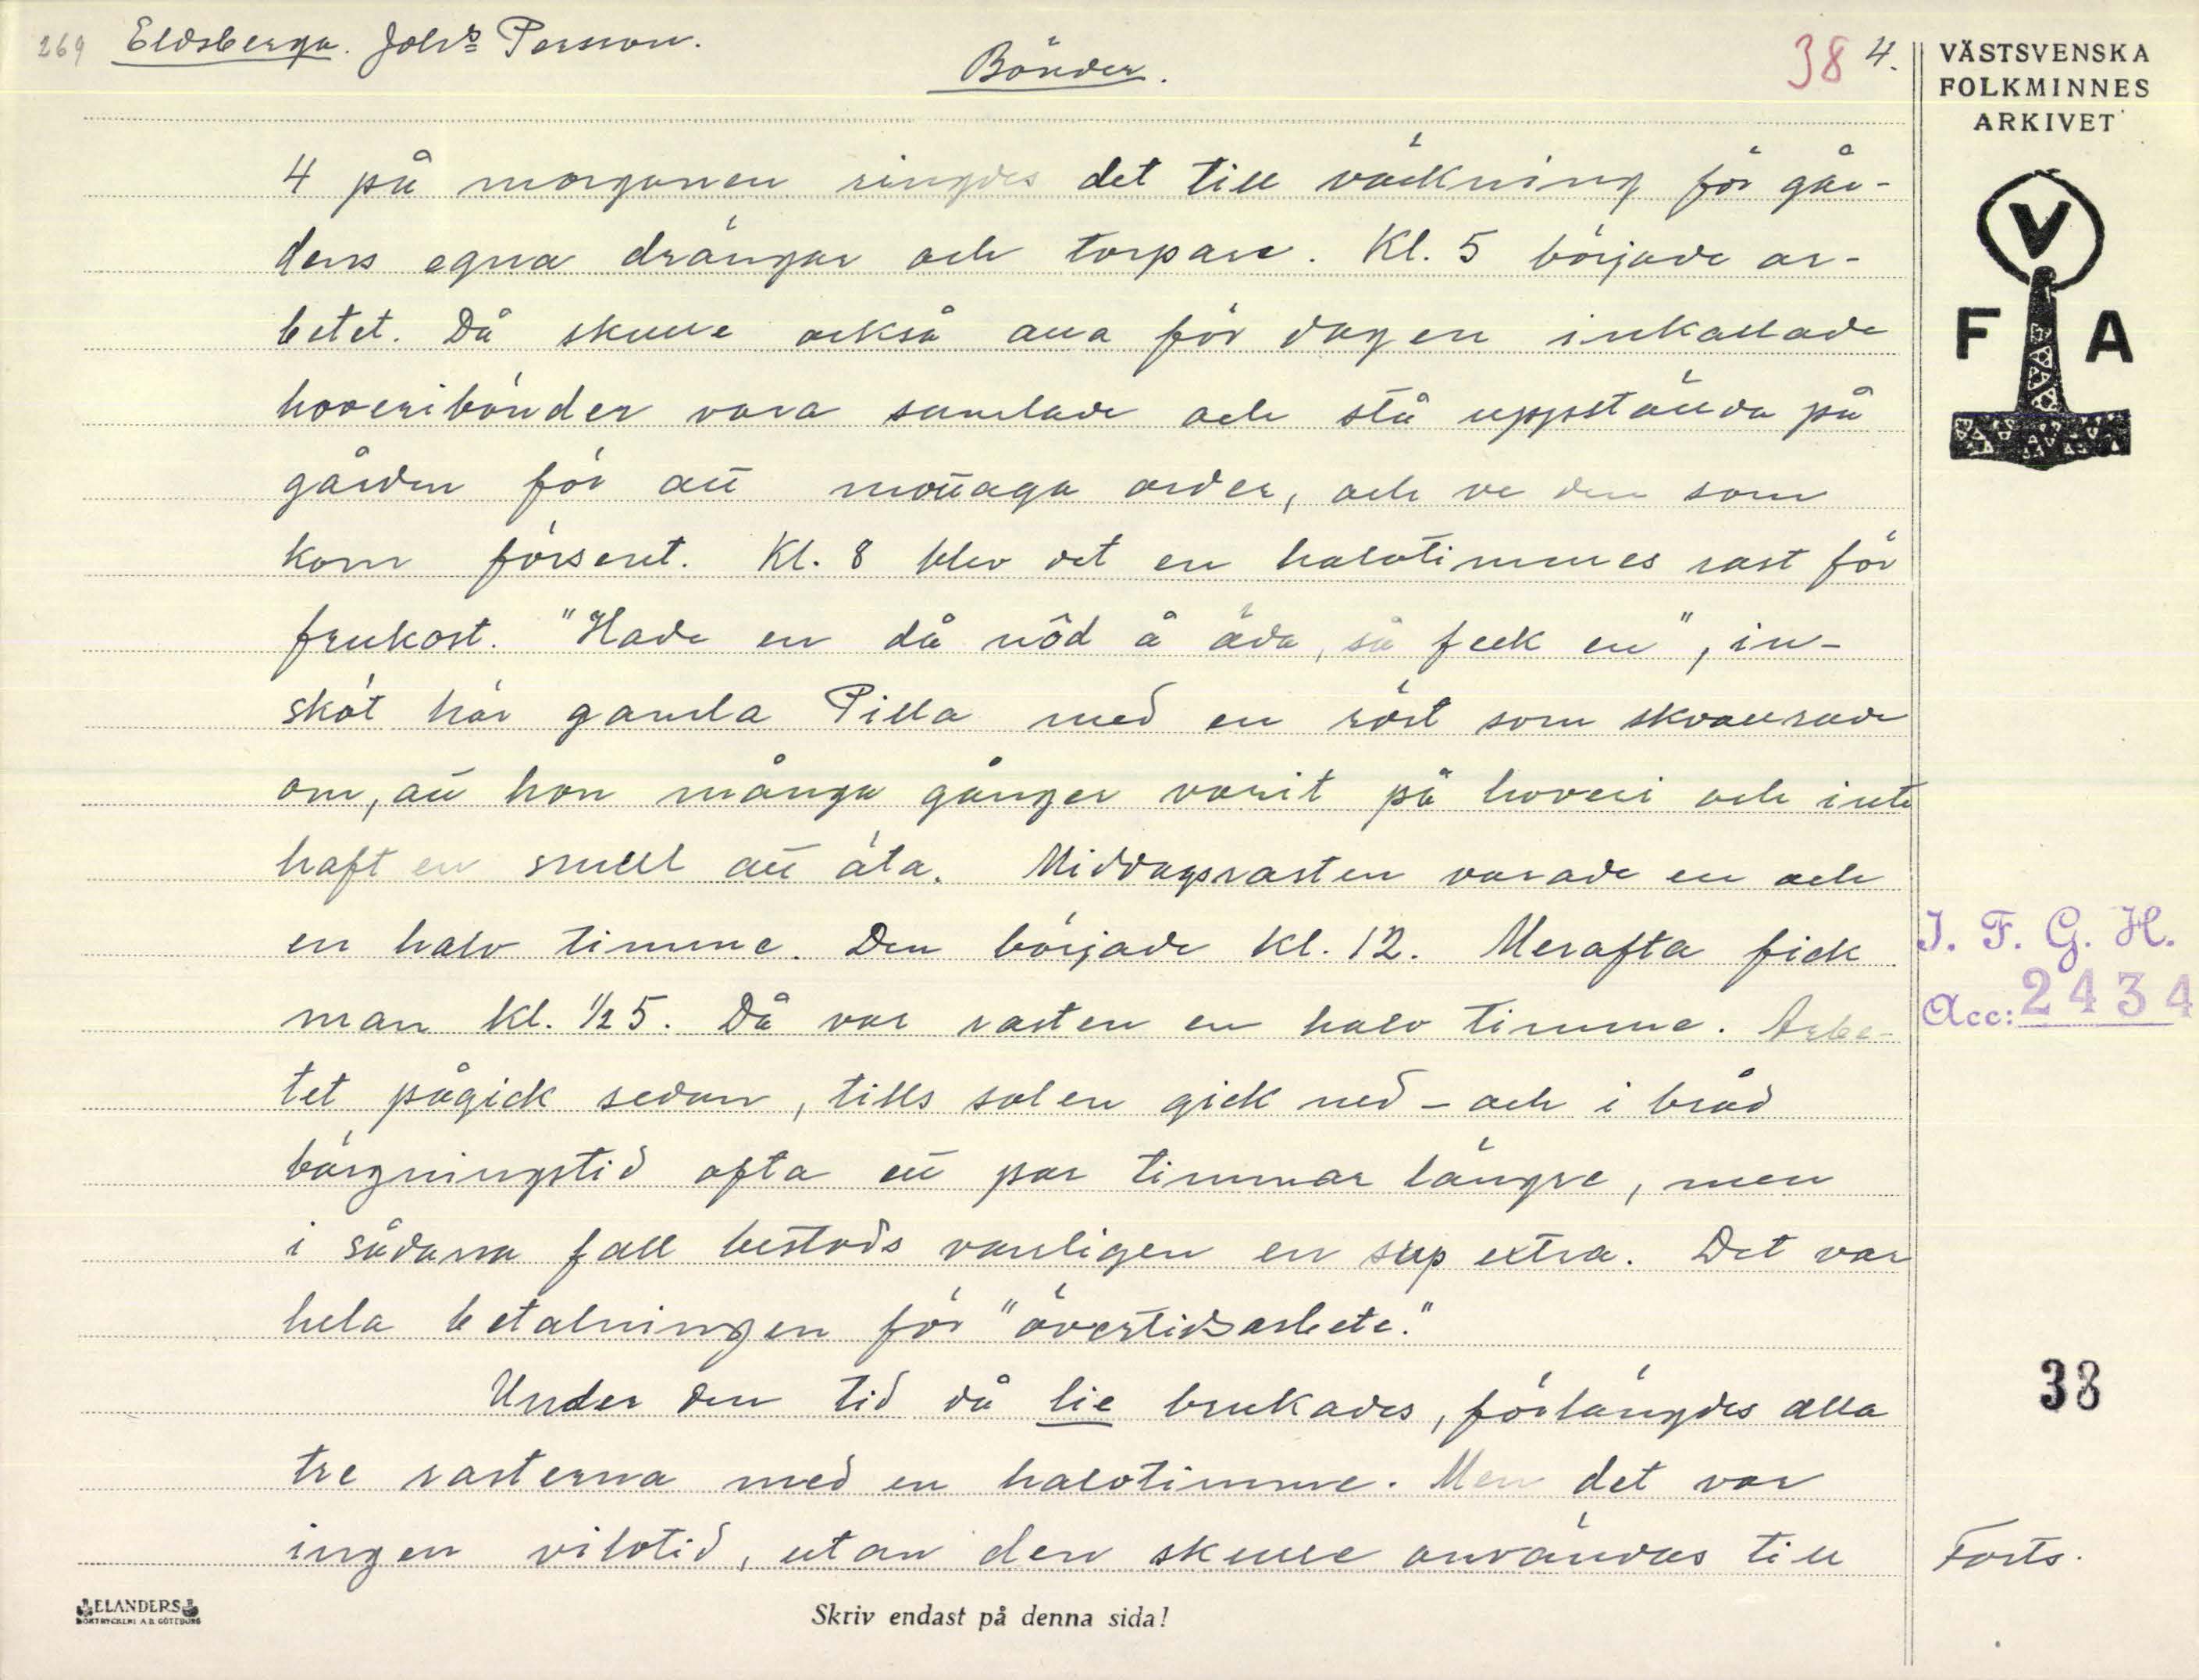 269 Eldsberga. Johs Persson.
Bönder.
38 4.
VÄSTSVENSKA
FOLKMINNES
ARKIVET
V
F A
4 på morgonen ringdes det till väckning för går-
dens egna drängar och torpare. Kl. 5 började ar-
betet. Då skulle också alla för dagen inkallade
hoveribönder vara samlade och stå uppställda på
gården för att mottaga order, och ve den som
kom försent. Kl. 8 blev det en halvtimmes rast för
frukost. "Hade en då nôd å äda, så feck en", in-
sköt här gamla Pilla med en röst som skvallrade
om, att hon många gånger varit på hoveri och inte
haft en smull att äta. Middagsrasten varade en och
en halv timme. Den började kl. 12. Merafta fick
man kl. 1/2 5. Då var rasten en halv timme. Arbe-
tet pågick sedan, tills solen gick ned – och i bråd
bärgningstid ofta ett par timmar längre, men
i sådana fall bestods vanligen en sup extra. Det var
hela betalningen för "övertidsarbete."
Under den tid då lie brukades, förlängdes alla
tre rasterna med en halvtimme. Men det var
ingen vilotid, utan den skulle användas till
I. F. G. H.
Acc: 2434
38
Forts.
ELANDERS
BOKTRYCKERI A.B. GÖTEBORG
Skriv endast på denna sida!